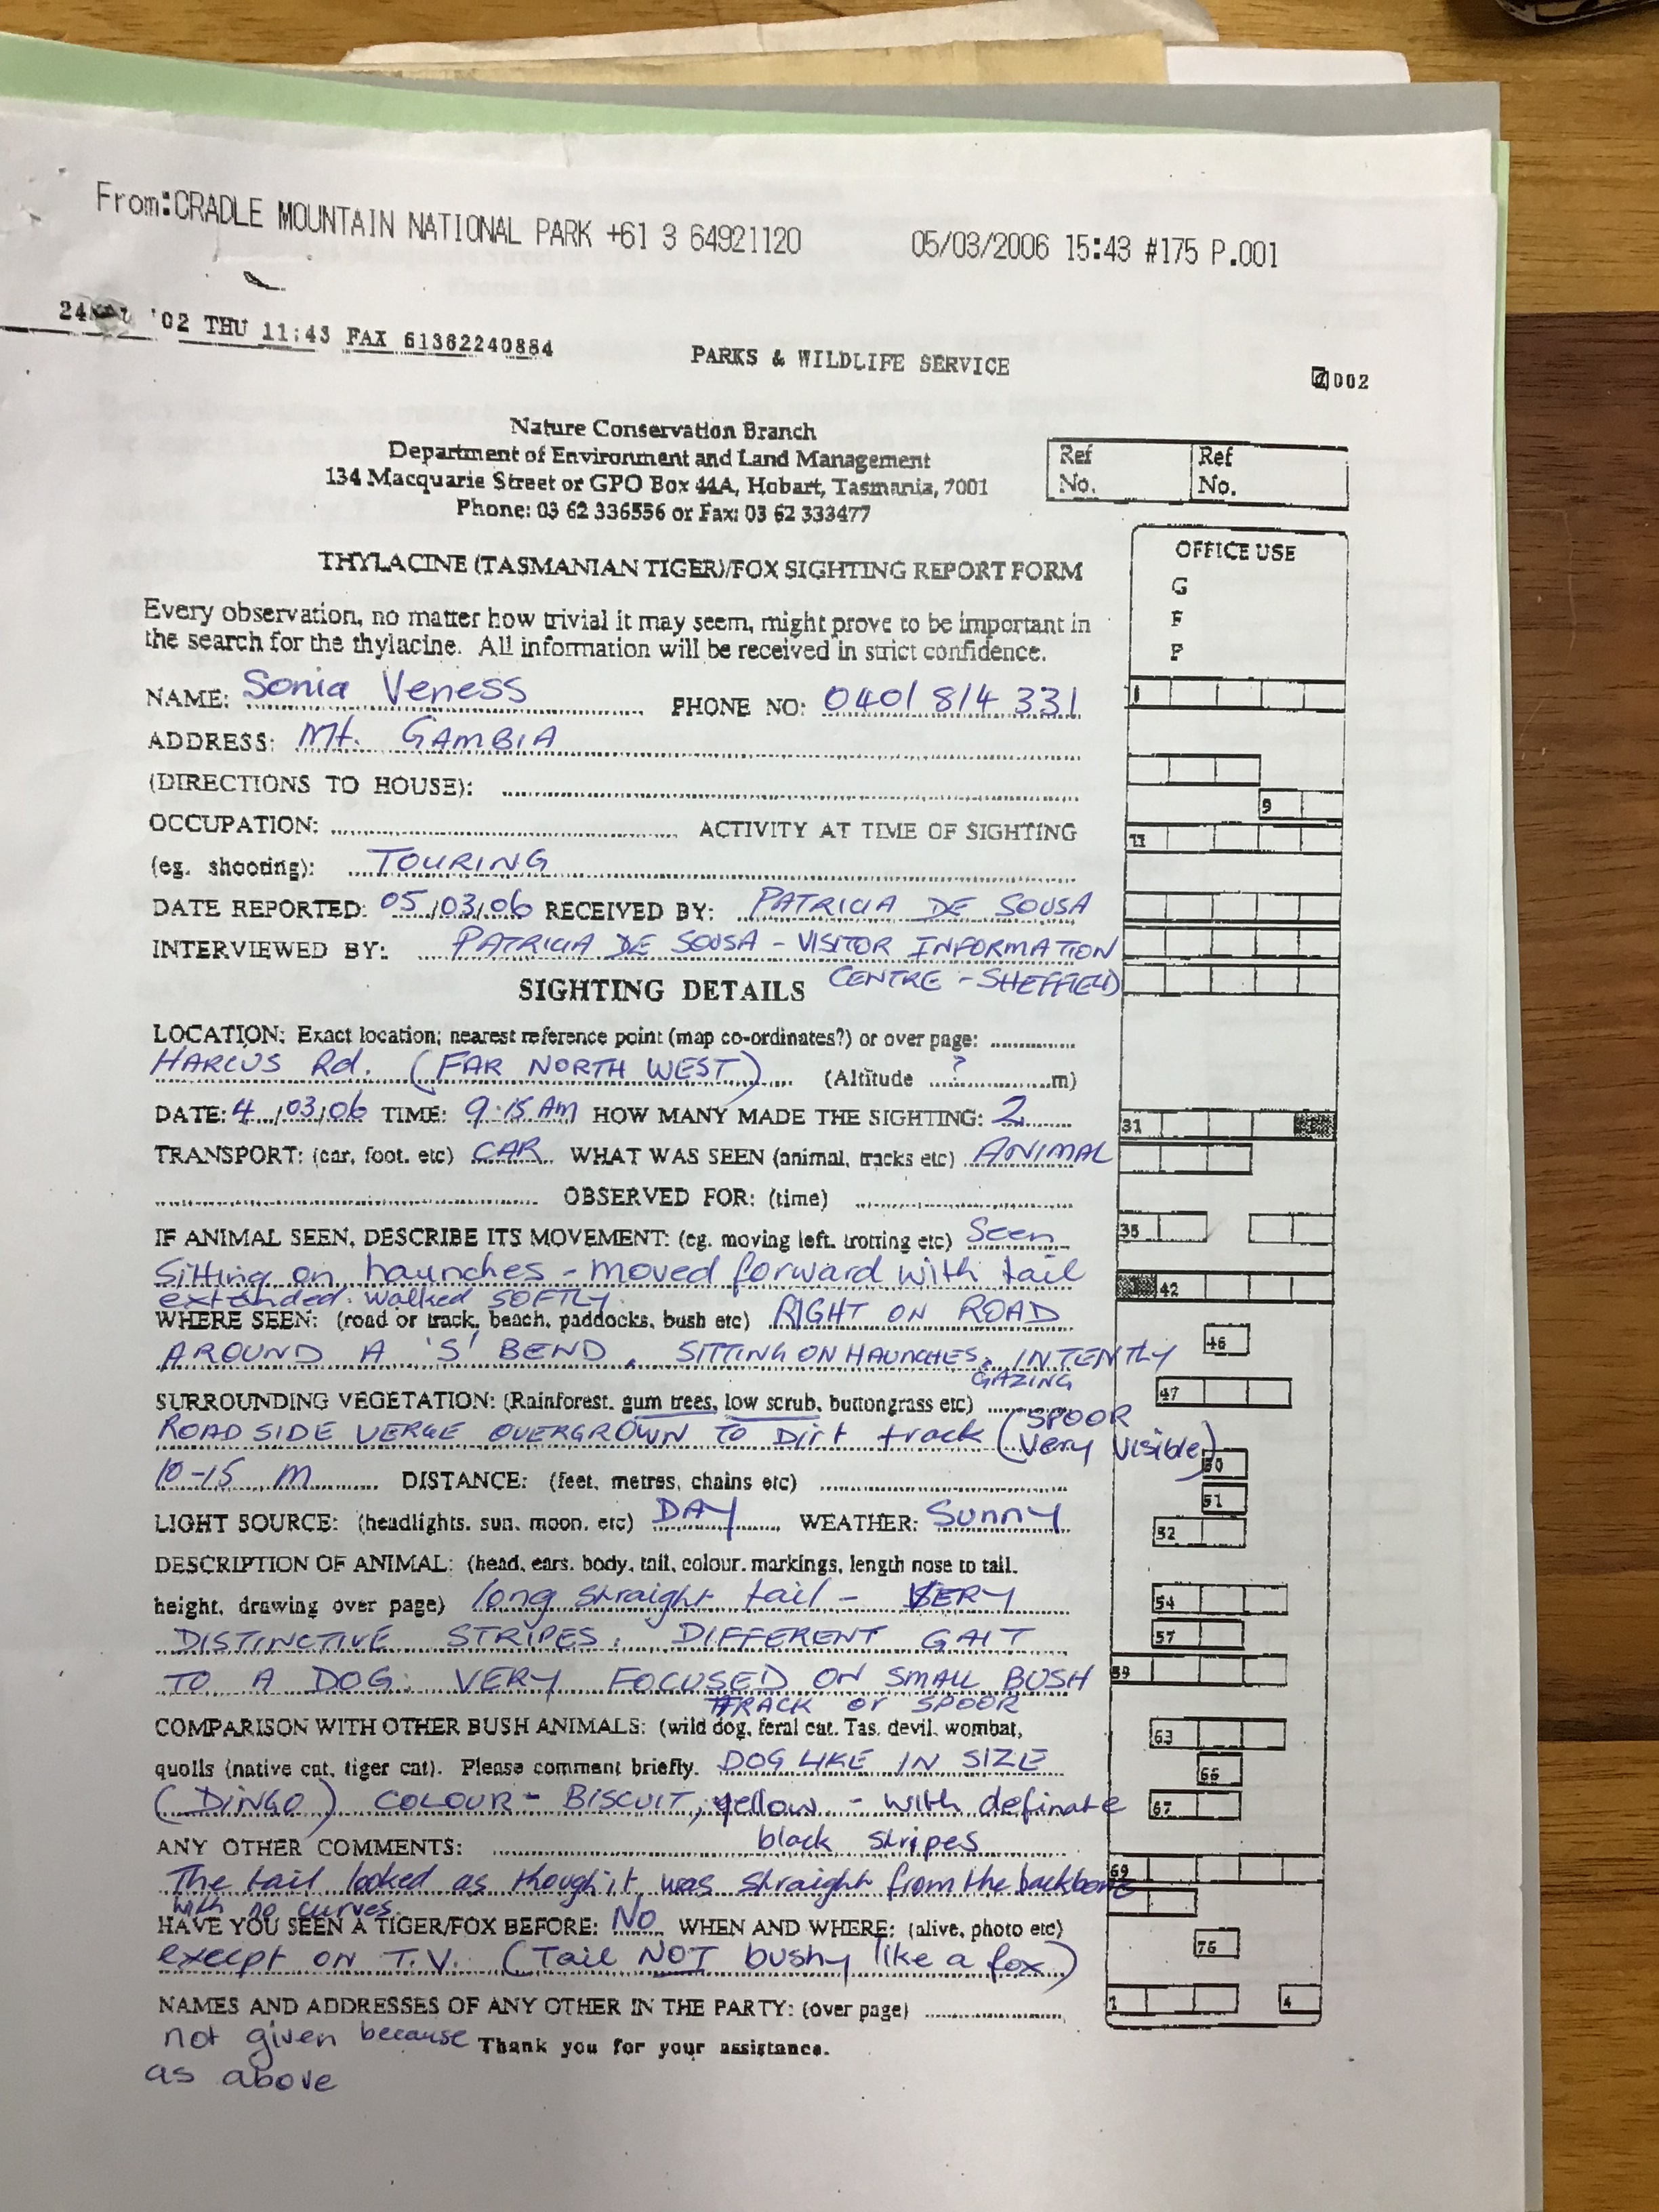 From:CRADLE MOUNTAIN NATIONAL PARK +61 3 64921120 05/03/2006 15:43 #175 P.001
'02 THU 11:43 FAX 61362240884 PARKS & WILDLIFE SERVICE 002
Nature Conservation Branch
Department of Environment and Land Management
134 Macquarie Street or GPO Box 44A, Hobart, Tasmania, 7001
Phone: 03 62 336556 or Fax: 03 62 333477
Ref No. Ref No.
THYLACINE (TASMANIAN TIGER)/FOX SIGHTING REPORT FORM
Every observation, no matter how trivial it may seem, might prove to be important in
the search for the thylacine. All information will be received in strict confidence.
OFFICE USE
G
F
P
NAME: Sonia Veness PHONE NO: 0401 814 331
1
ADDRESS: Mt. GAMBIA
(DIRECTIONS TO HOUSE):
9
OCCUPATION: ACTIVITY AT TIME OF SIGHTING
11
(eg. shooting): TOURING
DATE REPORTED: 05/03/06 RECEIVED BY: PATRICIA DE SOUSA
INTERVIEWED BY: PATRICIA DE SOUSA - VISITOR INFORMATION
CENTRE - SHEFFIELD
SIGHTING DETAILS
LOCATION: Exact location; nearest reference point (map co-ordinates?) or over page:
HARCUS Rd. (FAR NORTH WEST) (Altitude ? m)
DATE: 4/03/06 TIME: 9:15 AM HOW MANY MADE THE SIGHTING: 2
31
TRANSPORT: (car, foot. etc) CAR WHAT WAS SEEN (animal, tracks etc) ANIMAL
OBSERVED FOR: (time)
IF ANIMAL SEEN, DESCRIBE ITS MOVEMENT: (eg. moving left. trotting etc) Seen
35
Sitting on haunches - moved forward with tail
42
extended. walked SOFTLY.
WHERE SEEN: (road or track, beach, paddocks, bush etc) RIGHT ON ROAD
46
AROUND A 'S' BEND. SITTING ON HAUNCHES. INTENTLY
GAZING
47
SURROUNDING VEGETATION: (Rainforest. gum trees, low scrub, buttongrass etc)
ROADSIDE VERGE OVERGROWN TO Dirt track (SPOOR
very visible)
50
10-15 m DISTANCE: (feet, metres, chains etc)
51
LIGHT SOURCE: (headlights. sun. moon. etc) DAY WEATHER: Sunny
52
DESCRIPTION OF ANIMAL: (head, ears. body, tail, colour. markings, length nose to tail.
height, drawing over page) long straight tail - VERY
54
DISTINCTIVE STRIPES. DIFFERENT GAIT
57
TO A DOG. VERY FOCUSED ON SMALL BUSH
59
TRACK or SPOOR
COMPARISON WITH OTHER BUSH ANIMALS: (wild dog, feral cat. Tas. devil. wombat,
63
quolls (native cat, tiger cat). Please comment briefly. DOG LIKE IN SIZE
66
(DINGO) COLOUR - BISCUIT, yellow - with definate
67
black stripes
ANY OTHER COMMENTS:
69
The tail looked as though it was straight from the backbone
with no curves.
HAVE YOU SEEN A TIGER/FOX BEFORE: No WHEN AND WHERE: (alive, photo etc)
76
except on T.V. (Tail NOT bushy like a fox)
NAMES AND ADDRESSES OF ANY OTHER IN THE PARTY: (over page)
1 4
not given because Thank you for your assistance.
as above